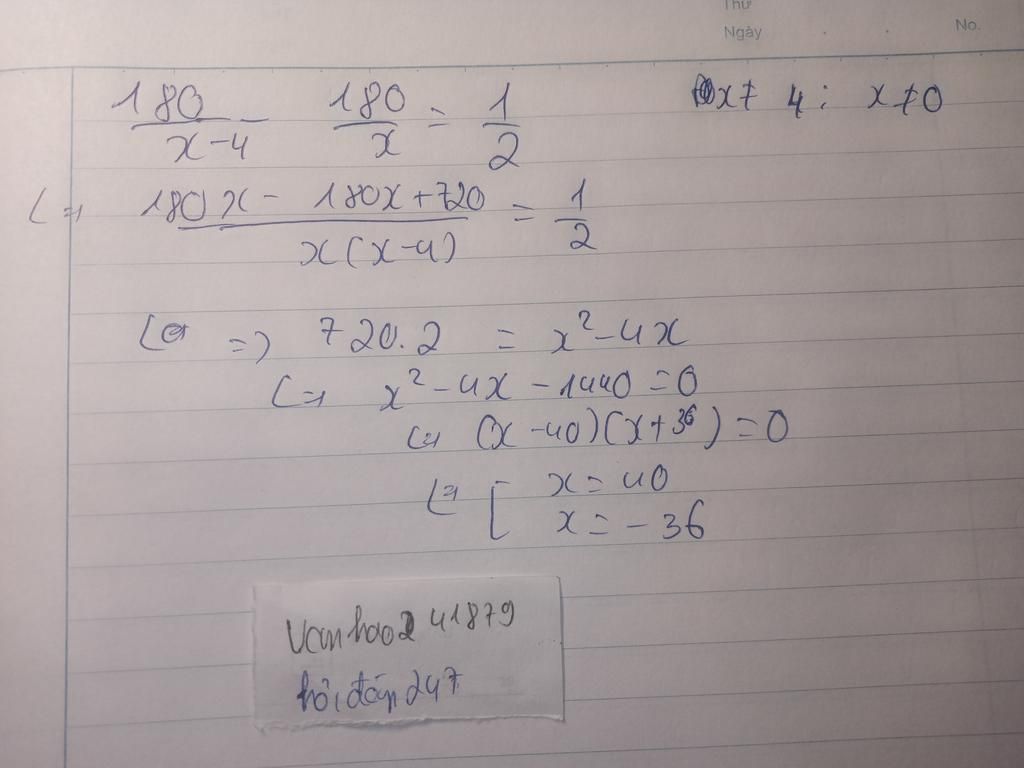 Thứ
Ngày No.
180/(x-4) - 180/x = 1/2 x ≠ 4 ; x ≠ 0
<=> (180x - 180x + 720)/(x(x-4)) = 1/2
=> 720.2 = x² - 4x
<=> x² - 4x - 1440 = 0
<=> (x - 40)(x + 36) = 0
<=> [ x = 40
x = -36
41879
hỏi đáp 247